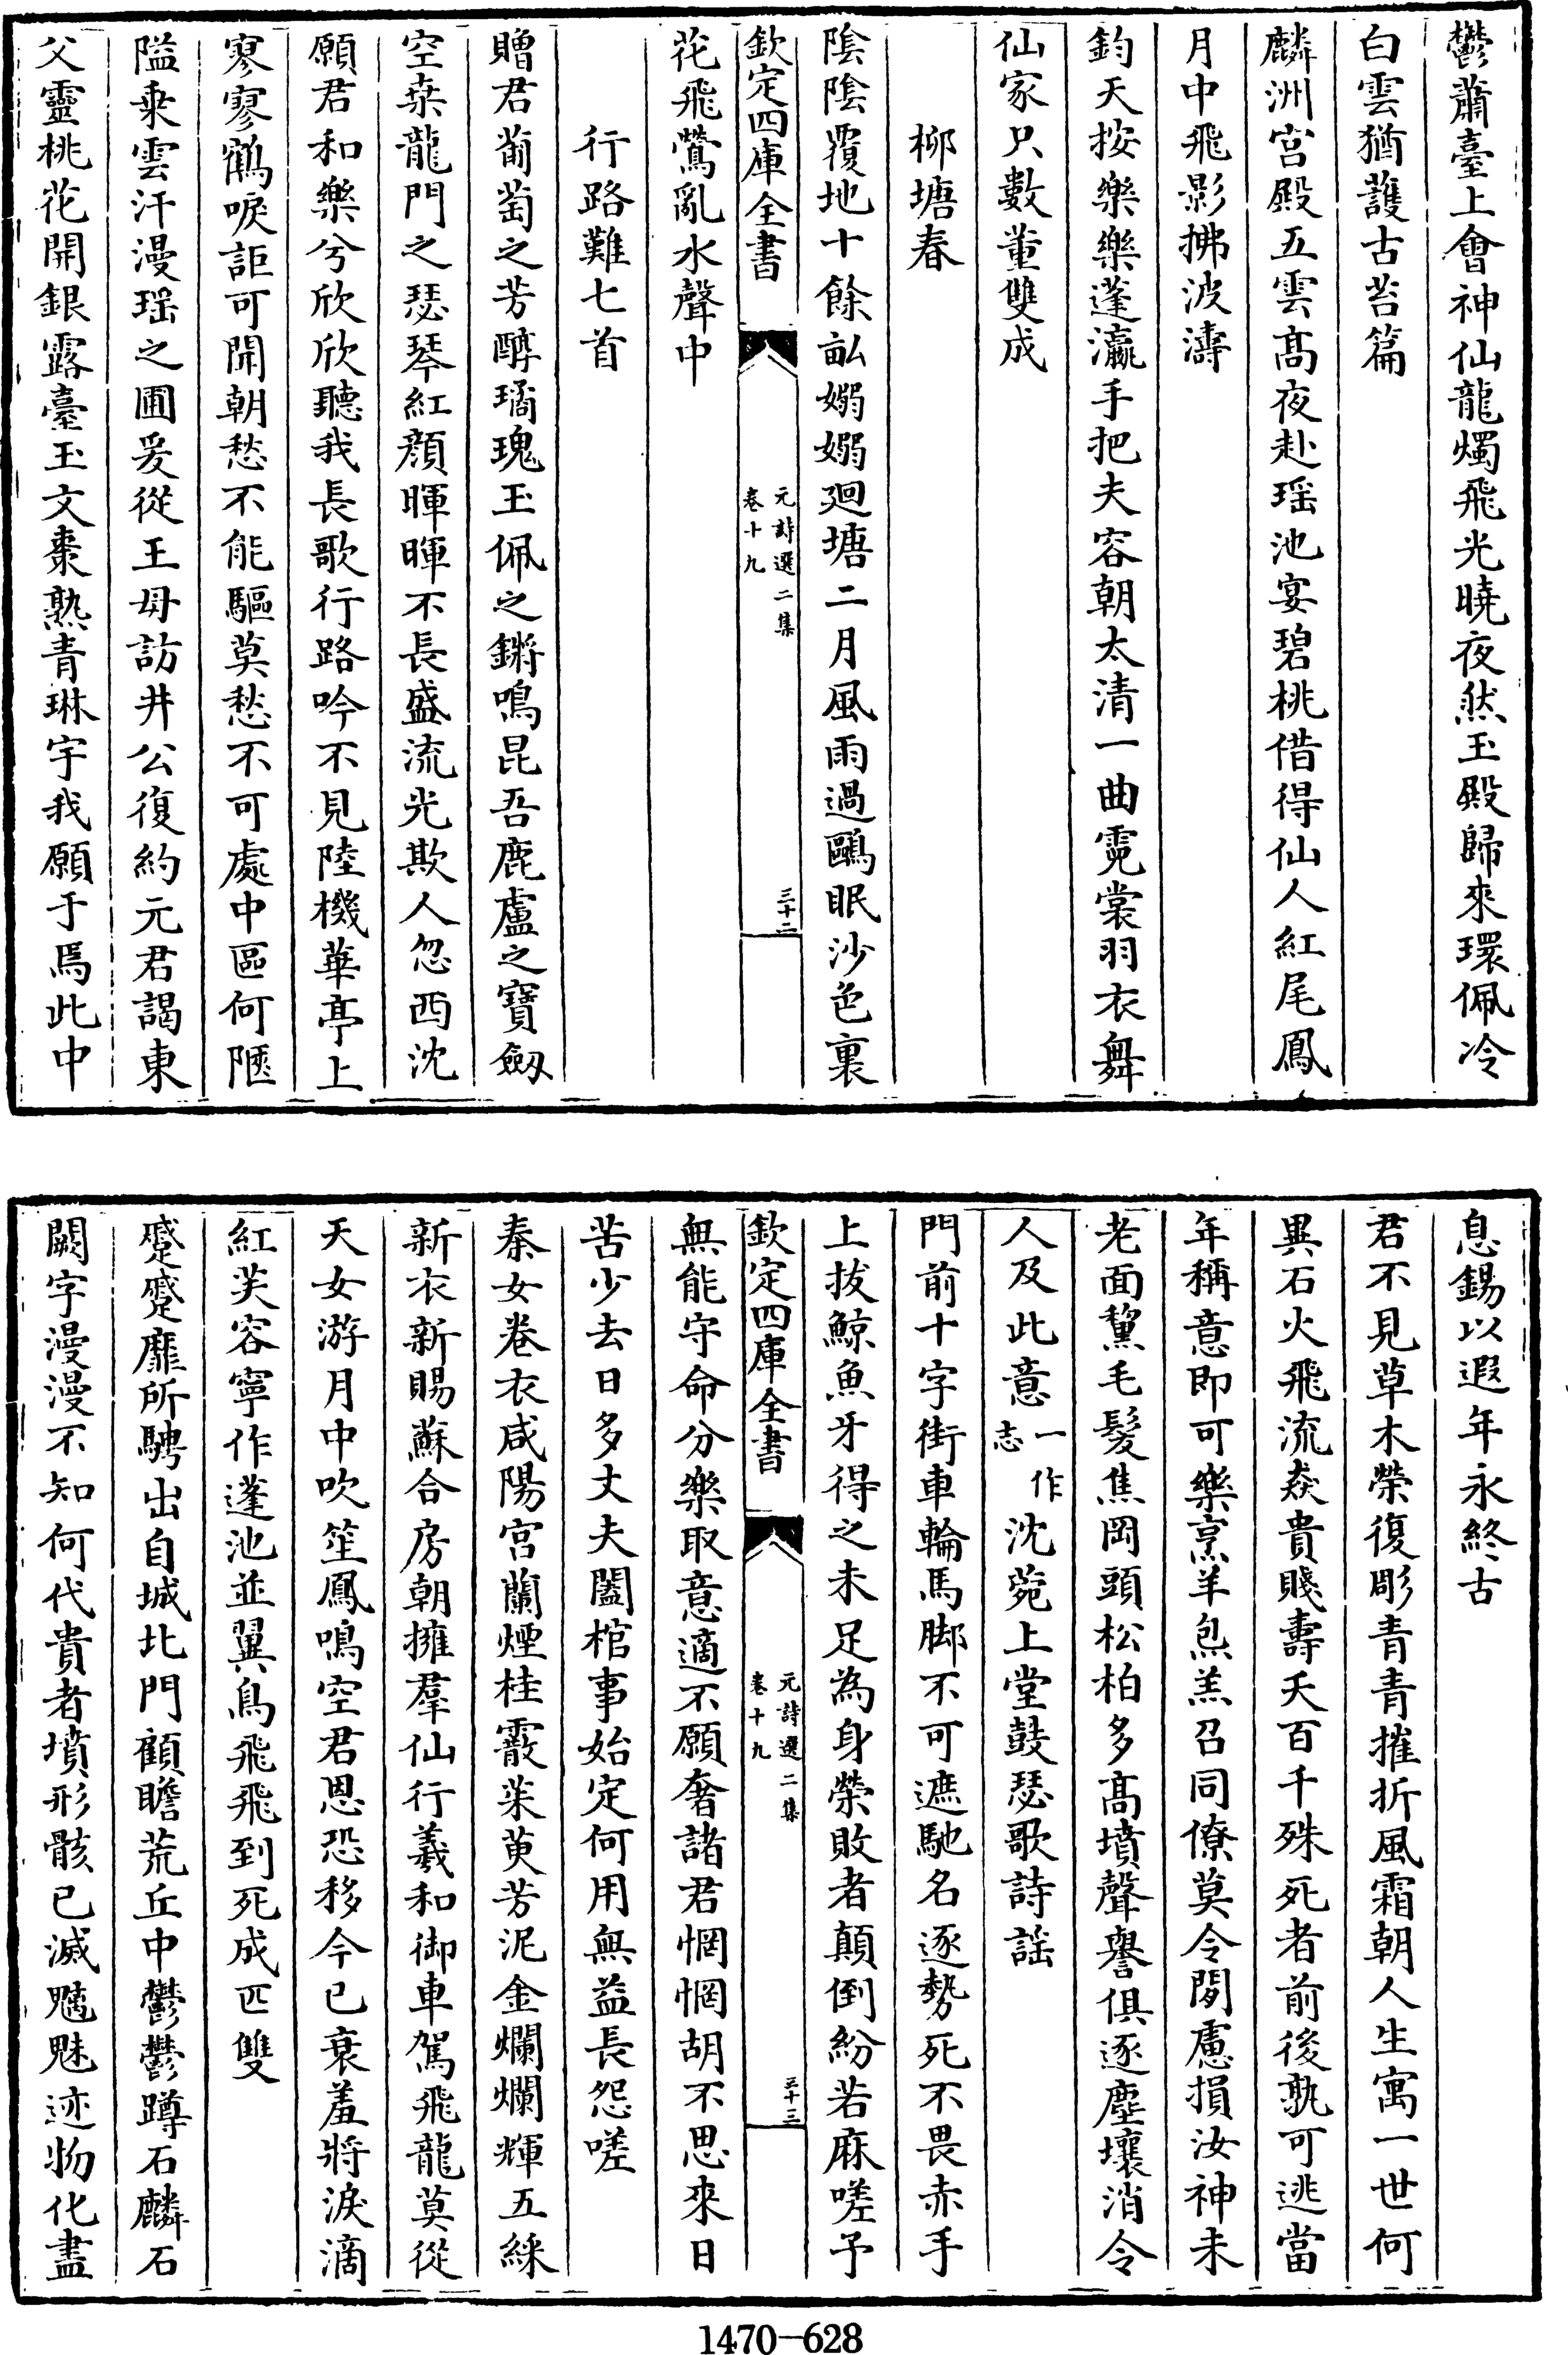 鬱蕭臺上會神仙龍燭飛光曉夜然玉殿歸來環佩冷
白雲猶護古苔篇
麟洲宮殿五雲髙夜赴瑶池宴碧桃借得仙人紅尾鳳
月中飛影拂波濤
鈞天按樂樂蓬瀛手把夫容朝太清一曲霓裳羽衣舞
仙家只數董雙成
柳塘春
隂隂覆地十餘畝嫋嫋廻塘二月風雨過鷗眠沙色裏
欽定四庫全書
元詩選二集
卷十九
三十二
花飛鶯亂水聲中
行路難七首
贈君葡萄之芳醇璚瑰玉佩之鏘鳴昆吾鹿盧之寶劔
空桒龍門之瑟琴紅顔暉暉不長盛流光欺人忽西沈
願君和樂兮欣欣聽我長歌行路吟不見陸機華亭上
寥寥鶴唳詎可聞朝愁不能驅莫愁不可處中區何陿
隘乗雲汗漫瑶之圃爰從王母訪井公復約元君謁東
父靈桃花開銀露臺玉文棗熟青琳宇我願于焉此中
息錫以遐年永終古
君不見草木榮復彫青青摧折風霜朝人生寓一世何
異石火飛流猋貴賤壽夭百千殊死者前後孰可逃當
年稱意即可樂烹羊炰羔召同僚莫令閒慮損汝神未
老面黧毛髮焦岡頭松柏多髙墳聲譽俱逐塵壤消令
人及此意一作志沈菀上堂鼓瑟歌詩謡
門前十字街車輪馬脚不可遮馳名逐勢死不畏赤手
上拔鯨魚牙得之未足為身榮敗者顛倒紛若麻嗟予
欽定四庫全書
元詩選二集
卷十九
三十三
無能守命分樂取意適不願奢諸君惘惘胡不思來日
苦少去日多丈夫闔棺事始定何用無益長怨嗟
秦女卷衣咸陽宮蘭煙桂霰茱萸芳泥金爛爛輝五綵
新衣新賜蘇合房朝擁羣仙行羲和御車駕飛龍莫從
天女游月中吹笙鳳鳴空君恩恐移今已衰羞將淚滴
紅芙容寧作蓬池並翼鳥飛飛到死成匹雙
蹙蹙靡所騁出自城北門顧瞻荒丘中鬱鬱蹲石麟石
闕字漫漫不知何代貴者墳形骸已滅魑魅迹物化盡
1470—628